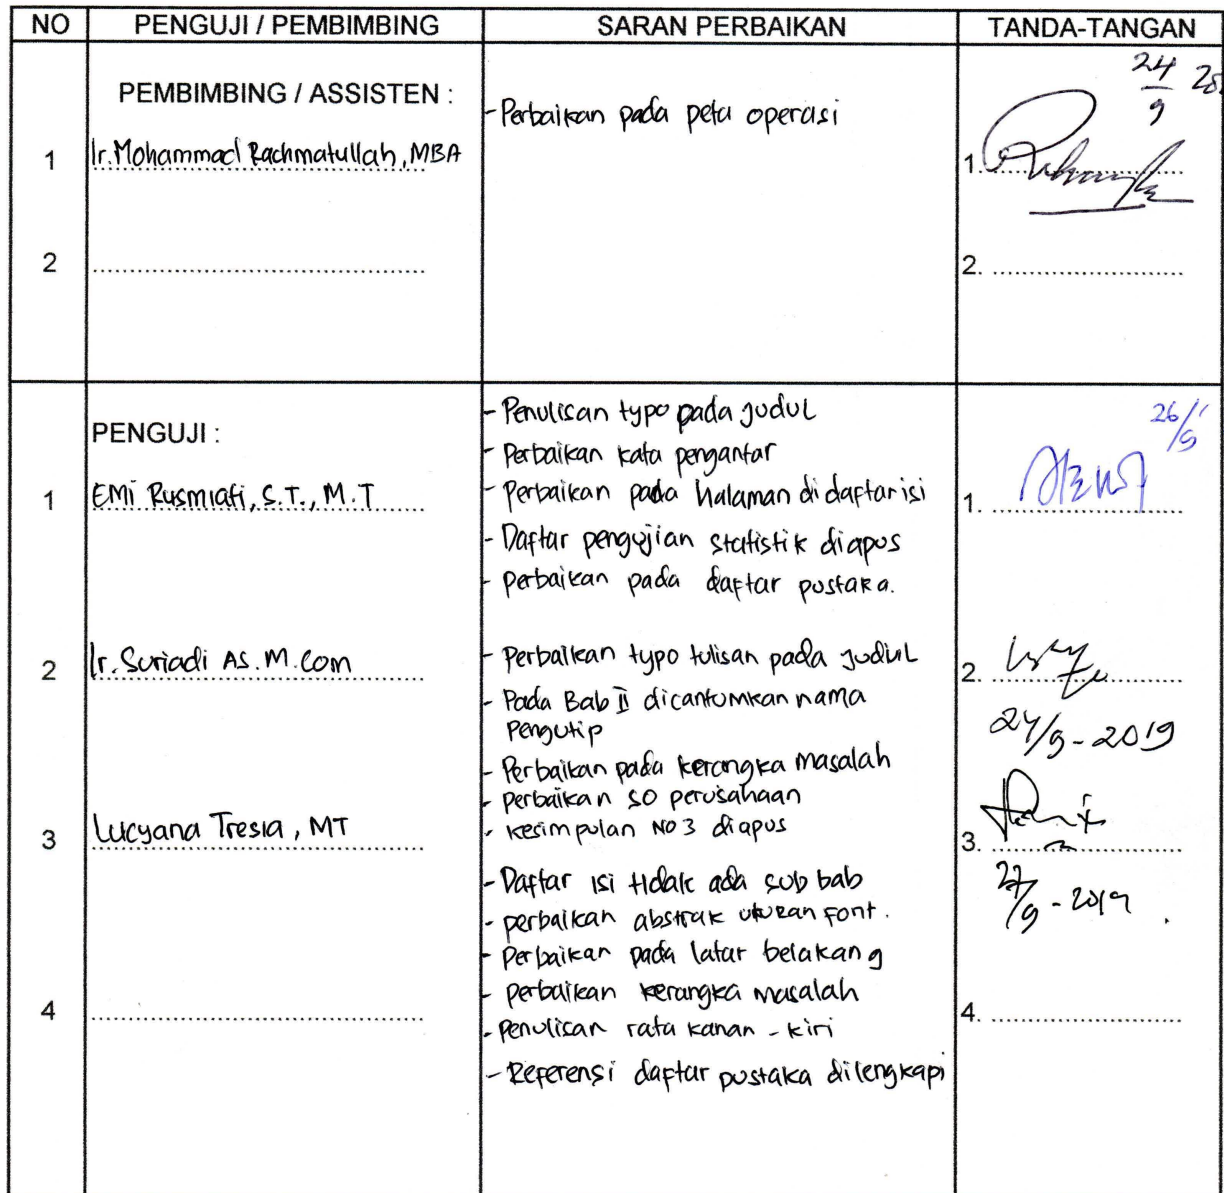 NO PENGUJI / PEMBIMBING SARAN PERBAIKAN TANDA-TANGAN
PEMBIMBING / ASSISTEN :
- Perbaikan pada peta operasi
24/9
1 Ir. Mohammad Rachmatullah, MBA 1.
2 2.
PENGUJI :
- Penulisan typo pada judul
26/9
- Perbaikan kata pengantar
1 EMi Rusmiati, S.T., M.T 1.
- Perbaikan pada halaman di daftar isi
- Daftar pengujian statistik diapus
- perbaikan pada daftar pustaka.
2 Ir. Suriadi AS. M.Com 2.
- Perbaikan typo tulisan pada judul
- Pada Bab II dicantumkan nama
Pengutip
24/9 - 2019
- Perbaikan pada kerangka masalah
- perbaikan SO perusahaan
3 Lucyana Tresia, MT 3.
- kesimpulan NO 3 diapus
- Daftar isi tidak ada sub bab
27/9 - 2019
- perbaikan abstrak ukuran font.
- Perbaikan pada latar belakang
- perbaikan kerangka masalah
4 4.
- Penulisan rata kanan - kiri
- Referensi daftar pustaka dilengkapi